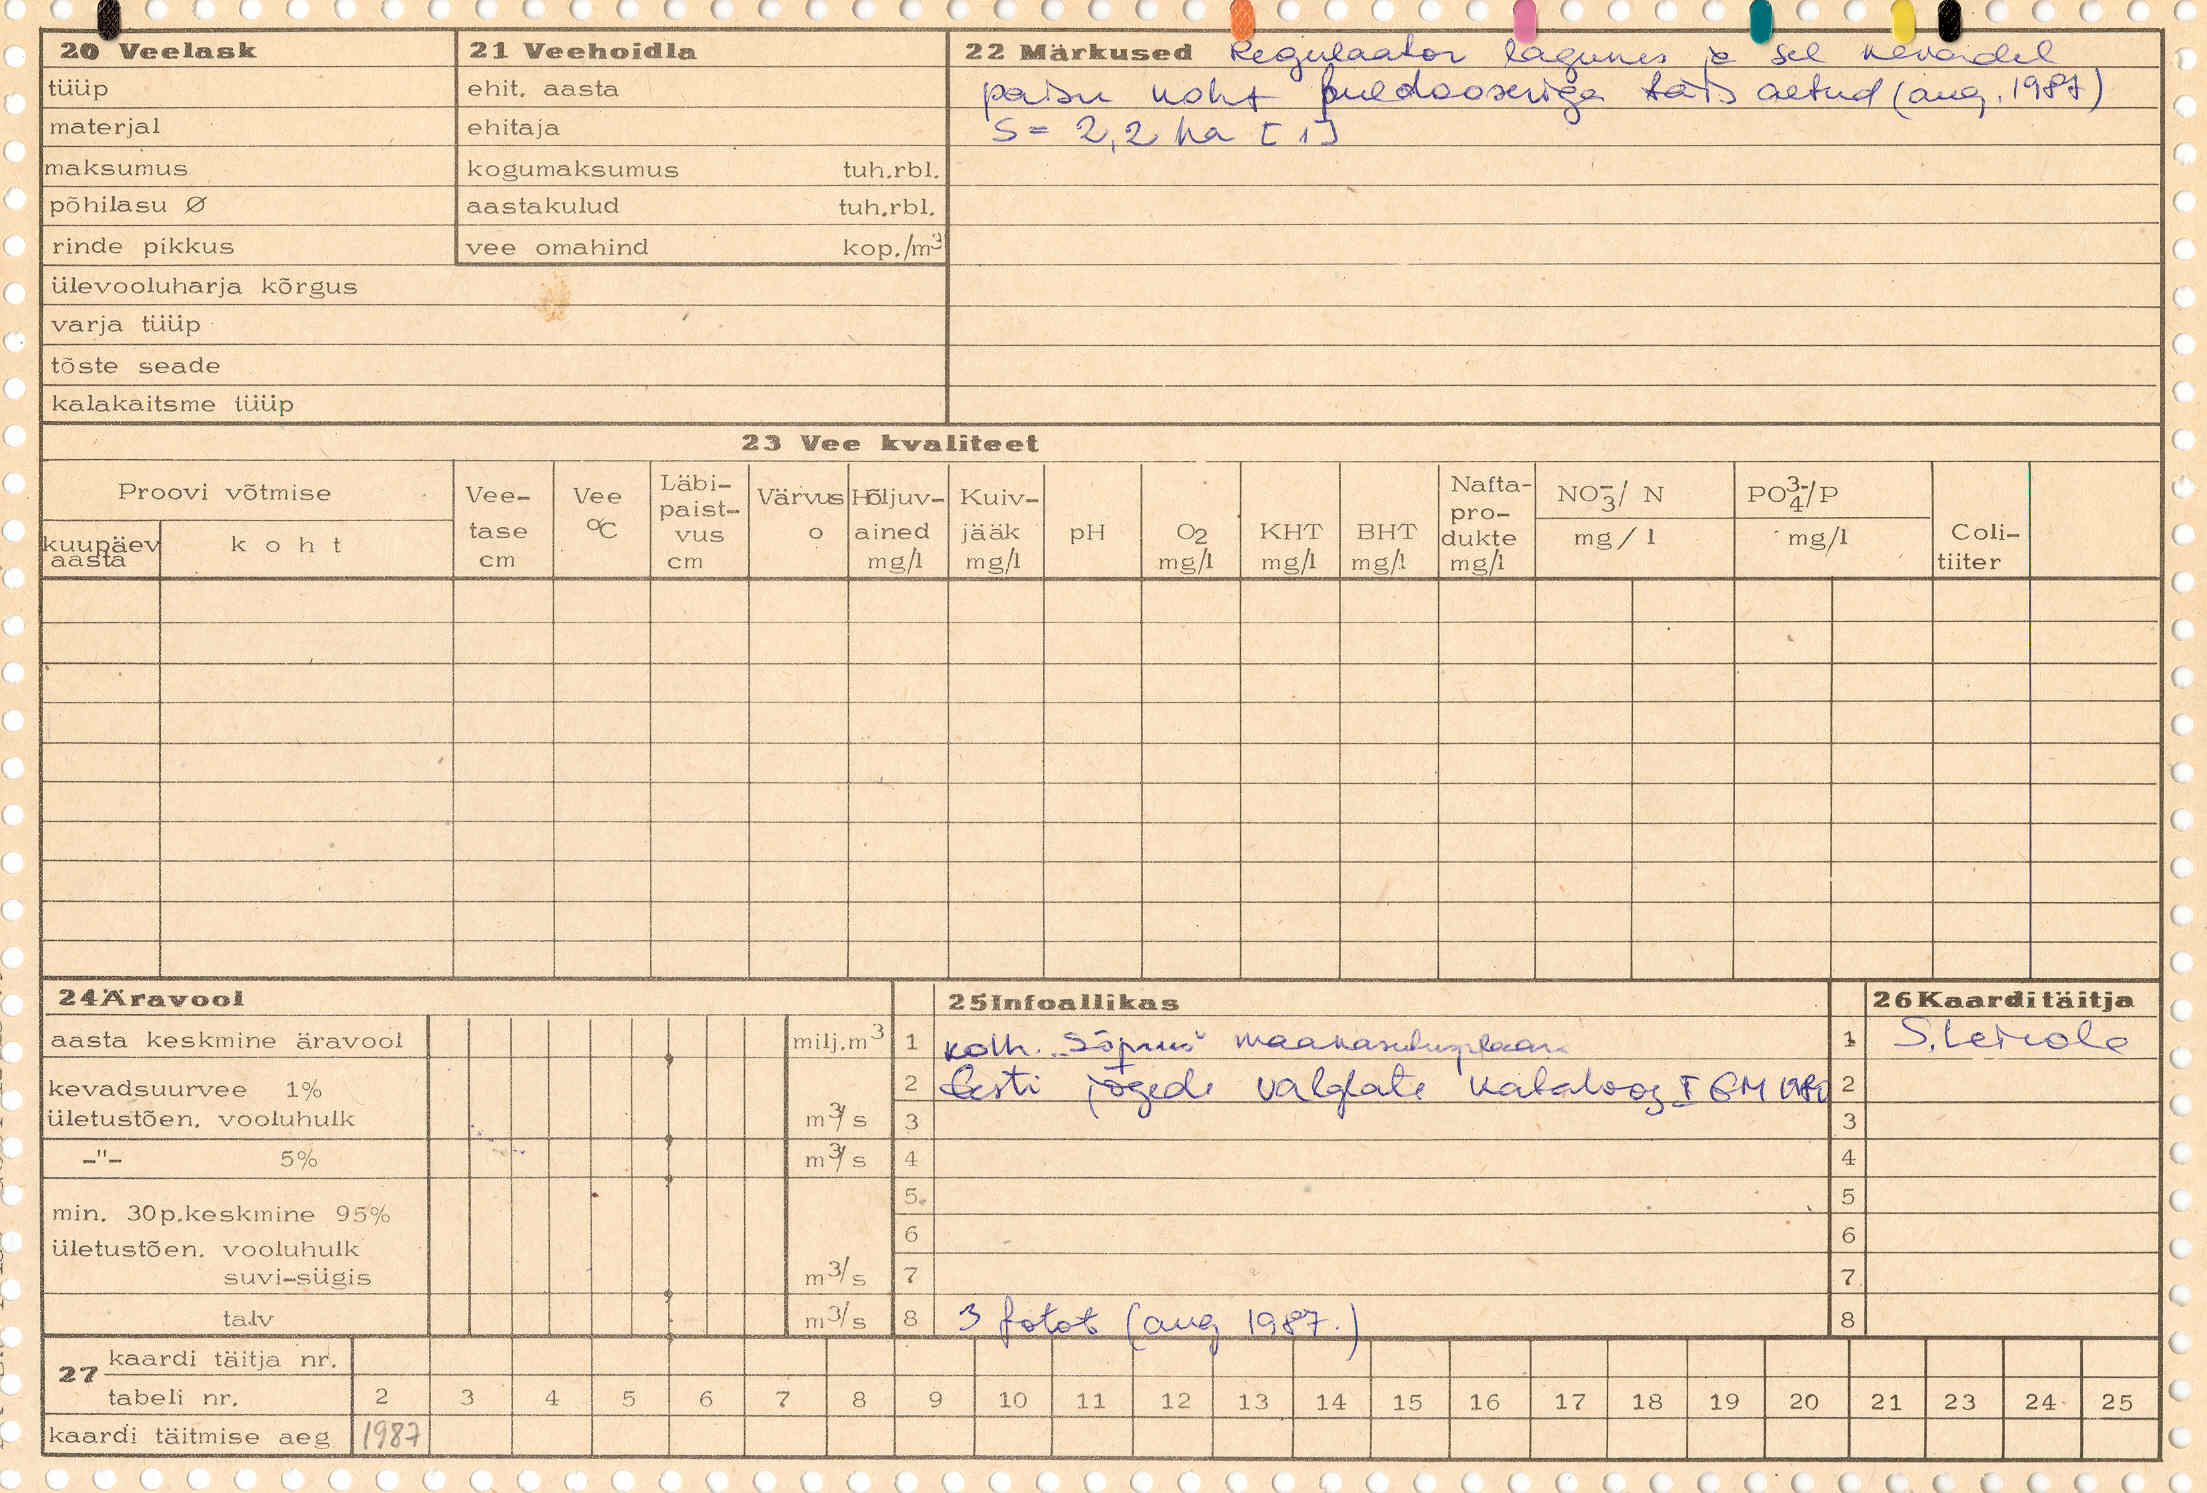 20 Veelask
tüüp
materjal
maksumus
põhilasu Ø
rinde pikkus
ülevooluharja kõrgus
varja tüüp
tõste seade
kalakaitsme tüüp
21 Veehoidla
ehit. aasta
ehitaja
kogumaksumus tuh.rbl.
aastakulud tuh.rbl.
vee omahind kop./m³
22 Märkused Regulaator lagunes ja sel kevadel
paisu koht buldooseriga täis aetud (aug. 1987)
S = 2,2 ha [1]
23 Vee kvaliteet
Proovi võtmise
kuupäev aasta
koht
Vee-tase cm
Vee °C
Läbi-paist-vus cm
Värvus o
Hõljuv-ained mg/l
Kuiv-jääk mg/l
pH
O₂ mg/l
KHT mg/l
BHT mg/l
Nafta-pro-dukte mg/l
NO₃⁻/ N mg/l
PO₄³⁻/P mg/l
Coli-tiiter
24 Äravool
aasta keskmine äravool milj.m³
kevadsuurvee 1%
ületustõen. vooluhulk m³/s
-"- 5% m³/s
min. 30p.keskmine 95%
ületustõen. vooluhulk
suvi-sügis m³/s
talv m³/s
25 Infoallikas
1 kolh. "Sõprus" maakasutusplaan
2 Eesti jõgede valglate kataloog I
3
4
5
6
7
8 3 fotot (aug 1987.)
26 Kaardi täitja
1
2
3
4
5
6
7
8
27 kaardi täitja nr.
tabeli nr. 2 3 4 5 6 7 8 9 10 11 12 13 14 15 16 17 18 19 20 21 23 24 25
kaardi täitmise aeg 1987